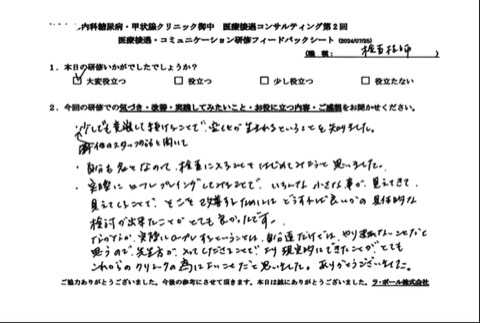 内科糖尿病・甲状腺クリニック御中 医療接遇コンサルティング第2回
医療接遇・コミュニケーション研修フィードバックシート (2024/07/25)
(職種: 検査技師)
1. 本日の研修いかがでしたでしょうか?
大変役立つ 役立つ 少し役立つ 役立たない
2. 今回の研修での気づき・改善・実践してみたいこと・お役に立つ内容・ご感想をお聞かせください。
・少しでも意識して続けることで、変化が生まれるということを知りました。
他のスタッフの話を聞いて
・自分も となって、検査に入ることをはじめてみようと思いました。
・実際にロープレイングしてみることで、いろんな小さな事が見えてきて
見えてくることで、そこを改善するためにはどうすれば良いかの具体的な
検討が出来たことがとても良かったです。
なかなか、実際にロープレするということは、自分達だけでは、やりきれないことだと
思うので、先生方が入ってくださることで、より現実的にできたことが、とても
これからのクリニックの為によいことだと思いました。ありがとうございました。
ご協力ありがとうございました。今後の参考にさせて頂きます。本日は誠にありがとうございました。 ラ・ポール株式会社